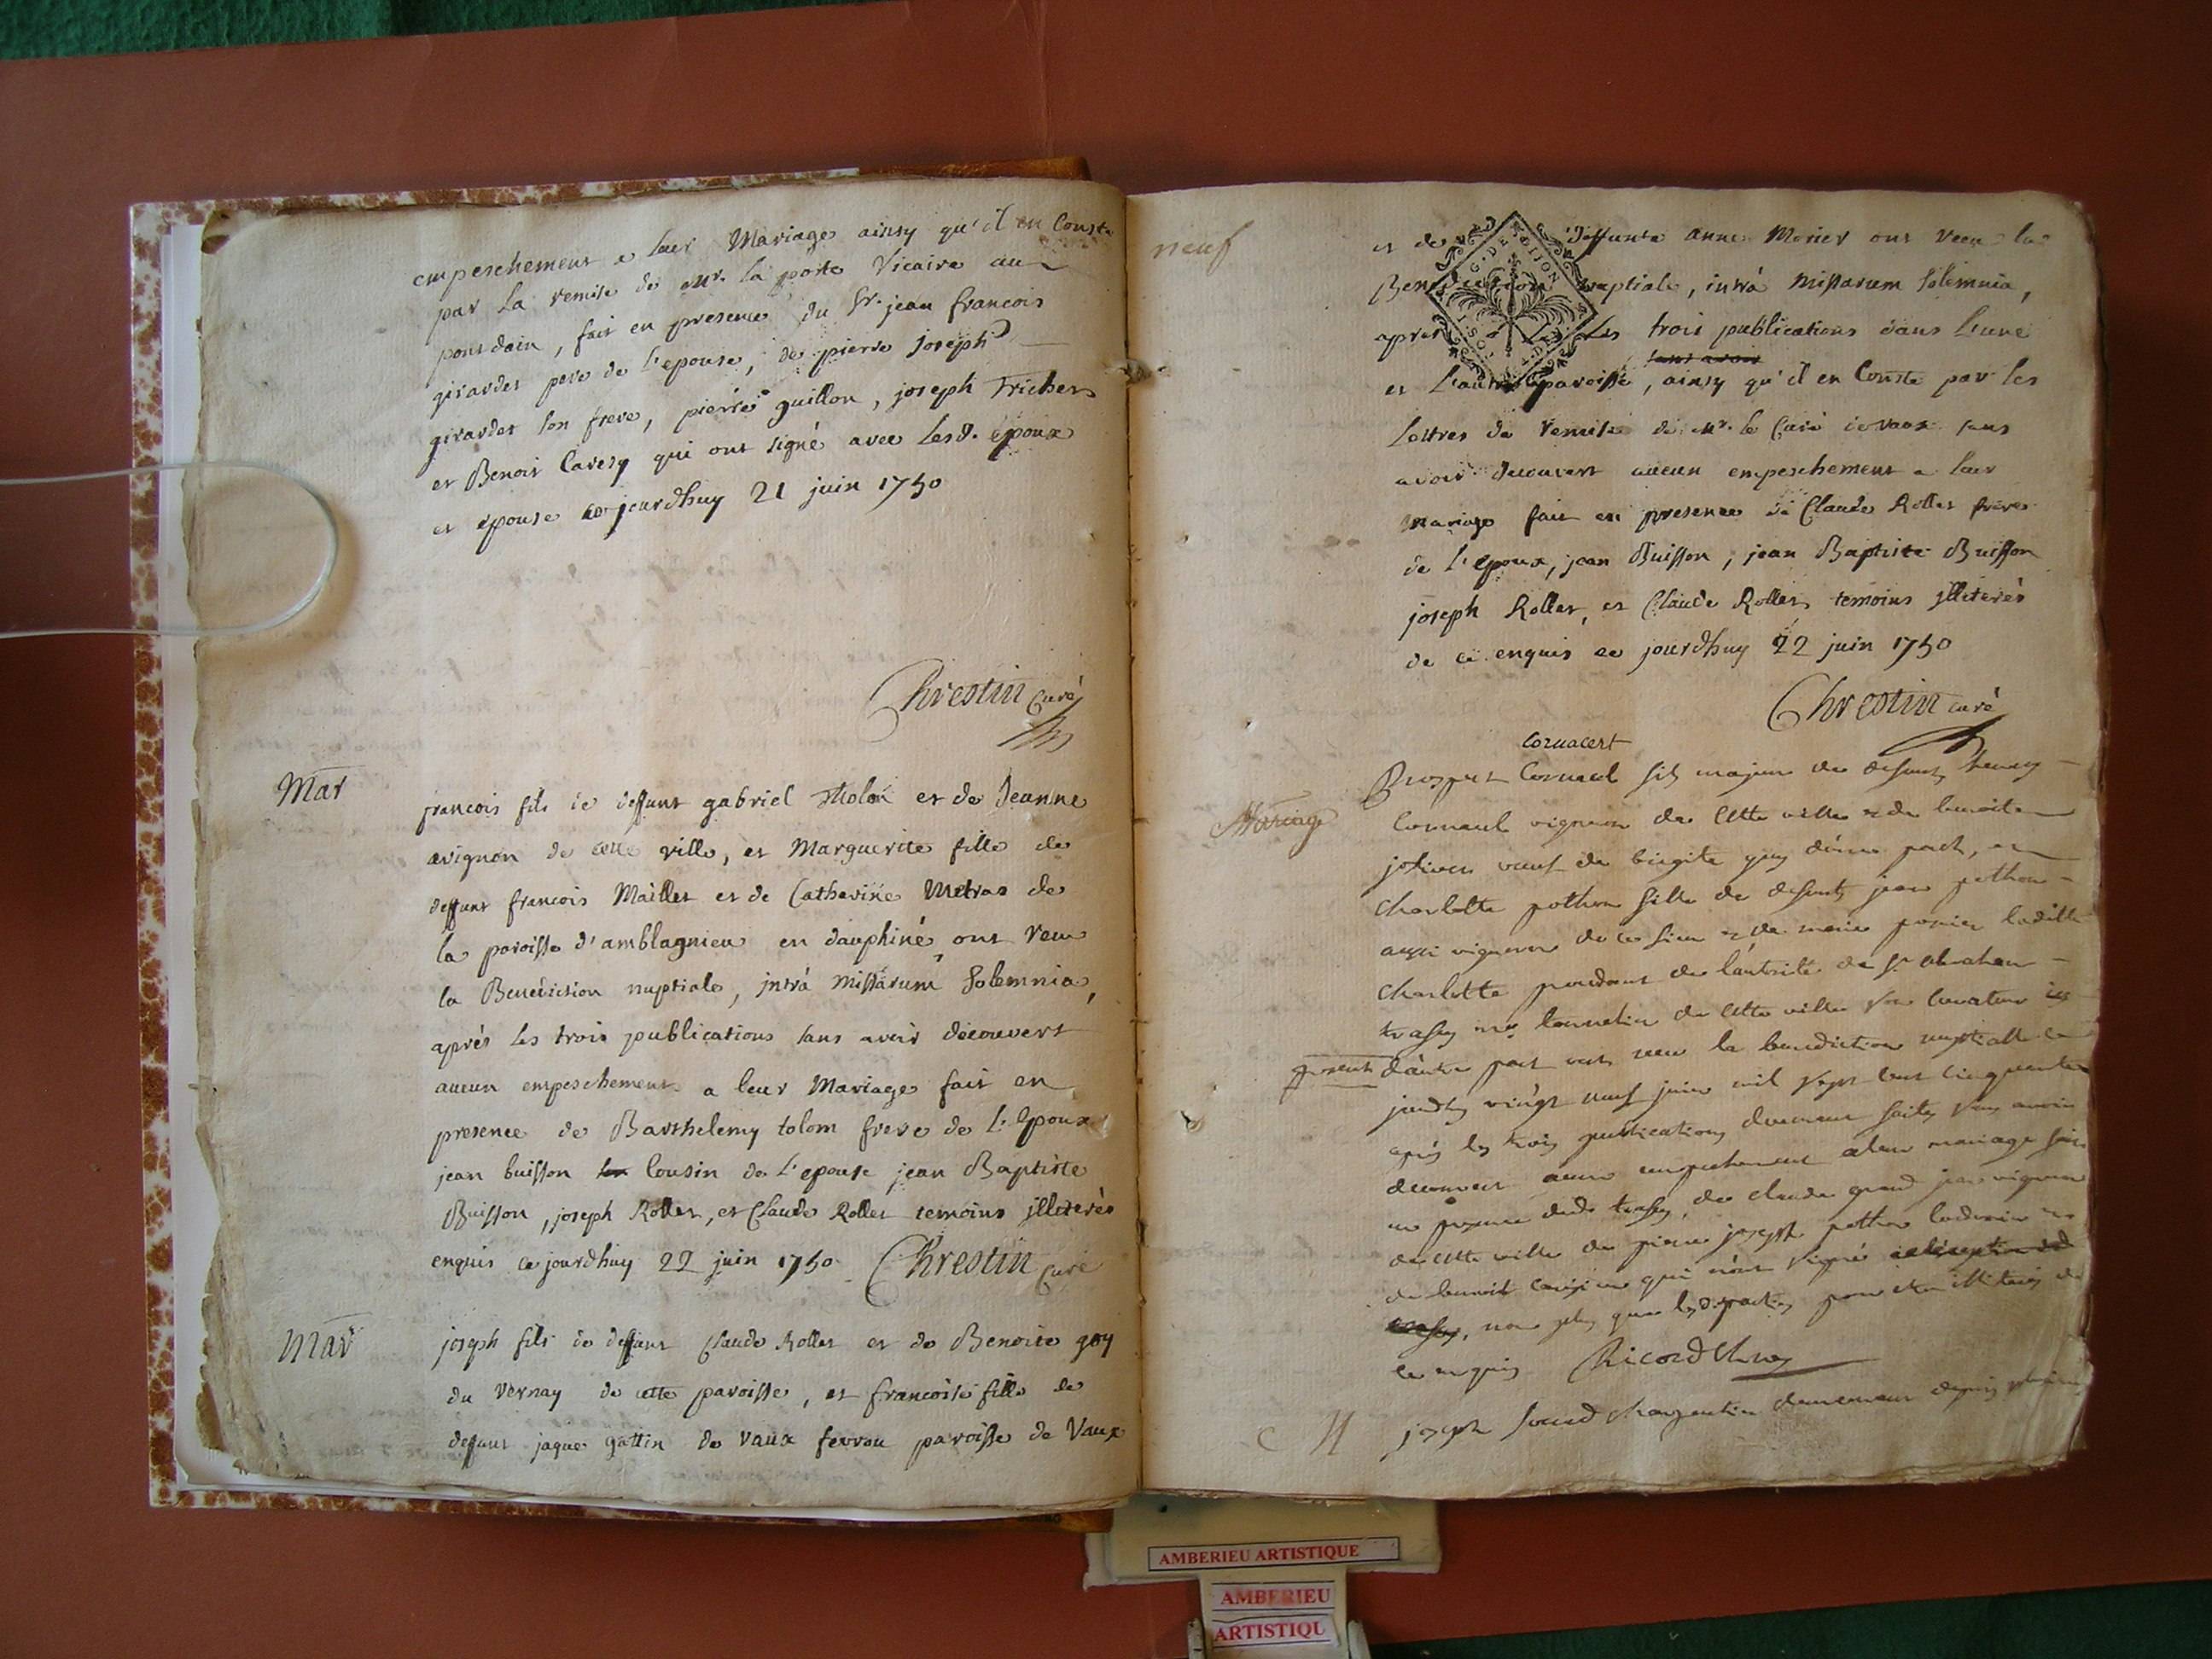 empeschement a leur Mariage ainsy qu'il en Conste
par la remise de Mr. la porte Vicaire au
pont dain, fait en presence du Sr. jean francois
girardet pere de l'epouse, de pierre joseph
girardet son frere, pierre guillon, joseph Tricher
et Benoit Caresy qui ont signé avec lesd. époux
et epouse ce jourdhuy 21 juin 1750
Chrestin Curé
Mar
francois fils de deffunt gabriel tholon et de Jeanne
avignon de cette ville, et Marguerite fille de
deffunt francois Maillet et de Catherine Metras de
la paroisse d'amblagnieu en dauphiné, ont reçu
la Benediction nuptiale, intrà missarum Solemnia,
aprés les trois publications sans avoir decouvert
aucun empeschement a leur Mariage fait en
presence de Barthelemy tolom frere de l'epoux
jean buisson cousin de l'epouse jean Baptiste
Buisson, joseph Rollet, et Claude Rollet temoins jlliterés
enquis ce jourdhuy 22 juin 1750 Chrestin Curé
Mar
joseph fils de deffunt Claude Rollet et de Benoite goy
du Vernay de cette paroisse, et francoise fille de
deffunt jaque gottin de Vaux fevrou paroisse de Vaux
neuf
et de deffunte anne Morier ont recu la
Benediction nuptiale, intrà missarum solemnia,
apres les trois publications dans l'une
et l'autre paroisse, ainsy qu'il en Conste par les
lettres de remise de Mr. le Curé de vaux sans
avoir decouvert aucun empeschement a leur
mariage fait en presence de Claude Rollet frere
de l'epoux, jean Buisson, jean Baptiste Buisson
joseph Rollet, et Claude Rollet temoins jlliterés
de ce enquis ce jourdhuy 22 juin 1750
Chrestin curé
Cornacert
Mariage
Prosper fils majeur de defunt
vigneron de cette ville & de benoite
veuf de d'une part, et
Charlotte pothon fille de defunt jean pothon
aussi vigneron de ce lieu & de ladite
Charlotte de l'autorité de Sr abraham
de cette ville son curateur
d'autre part ont recu la benediction nuptialle ce
vingt neuf juin mil sept cent cinquante
après les trois publications duement faites sans avoir
decouvert aucun empechement a leur mariage fait
en presence de claude grand jean vigneron
de cette ville de pierre joseph pothon
de benoit qui n'ont signé
non plus que les parties pour être illiterés de
ce enquis Ricord
joseph charpentier demeurant depuis
G. DE DIJON
AMBERIEU ARTISTIQUE
AMBERIEU
ARTISTIQU